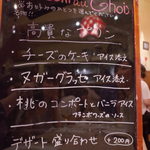 高貴なプリン
チーズのケーキ アイス添え
ヌガーグラッセ アイス添え
桃のコンポートとバニラアイス
フランボワーズのソース
デザート盛り合わせ +200円